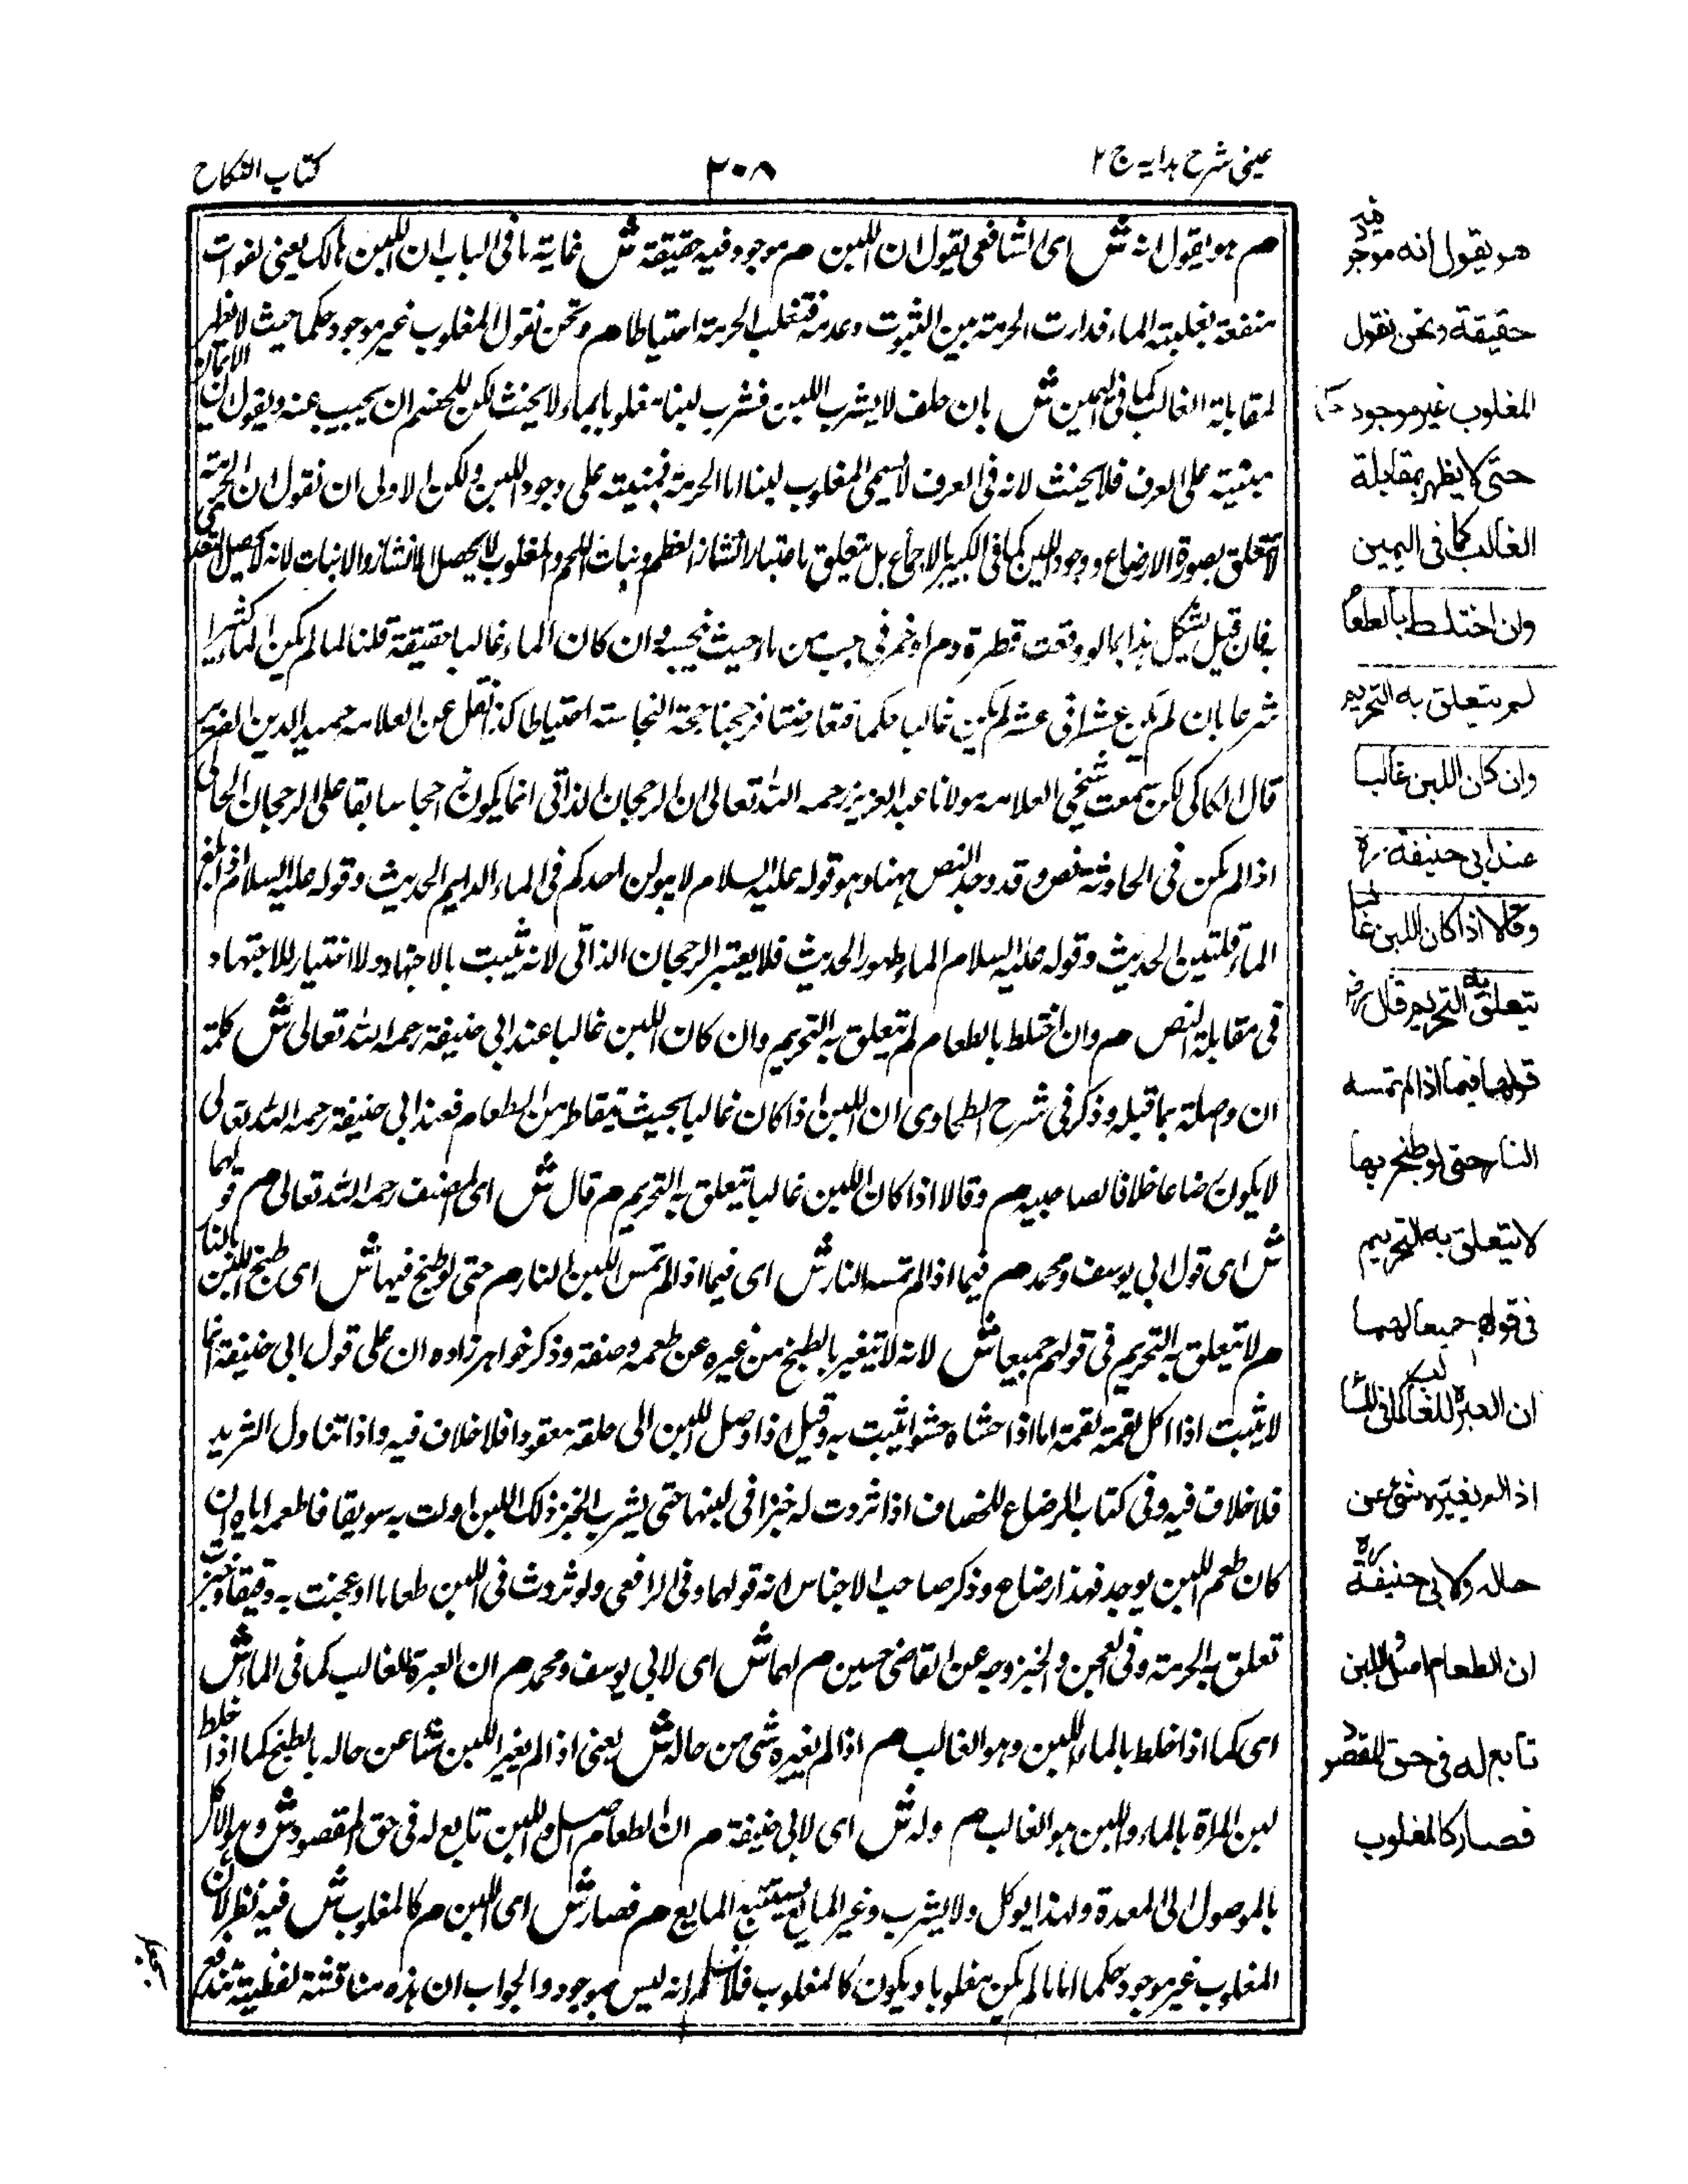 عینی شرح ہدایہ ج ٢
٢٠٨
کتاب النکاح
م هو یقول انه ش ای الشافعی یقول ان اللبن م موجود فیه حقیقة ش غایة ما فی الباب ان اللبن هالک یعنی لفوات
منفعة بغلبة الماء فدارت الحرمة بین الثبوت وعدمه فتغلب الحرمة احتیاطا م ونحن نقول المغلوب غیر موجود حکما حیث لا یظهر
لمقابلة الغالب کما فی الیمین ش بان حلف لا یشرب اللبن فشرب لبنا مغلوبا بالماء لا یحنث لکن للخصم ان یجیب عنه ویقول ان الایمان
مبنیة علی العرف فلا یحنث لانه فی العرف لا یسمی المغلوب لبنا اما الحرمة فمبنیة علی وجود اللبن ولکن الاولی ان نقول ان الحرمة
لا تتعلق بصورة الارضاع ووجود اللبن کما فی الکبیر بالاجماع بل یتعلق باعتبار انشاز العظم ونبات اللحم والمغلوب لا یحصل الانشاز والانبات لانه لا یحصل التغذی
به فان قیل یشکل هذا بما لو وقعت قطرة دم او خمر فی جب من ماء حیث ینجس وان کان الماء غالبا حقیقة قلنا لما لم یکن الماء کثیرا
شرعا بان لم یکن عشرا فی عشر لم یکن غالبا حکما فتعارضتا فرجحنا جهة النجاسة احتیاطا کذا نقل عن العلامة حمید الدین الضریر
قال الکاکی لکن سمعت شیخی العلامة مولانا عبد العزیز رحمه الله تعالی ان الرجحان الذاتی انما یکون راجحا سابقا علی الرجحان الحالی
اذا لم یکن فی الحادثة نص وقد وجد النص ههنا وهو قوله علیه السلام لا یبولن احدکم فی الماء الدایم الحدیث وقوله علیه السلام اذا بلغ
الماء قلتین الحدیث وقوله علیه السلام الماء طهور الحدیث فلا یعتبر الرجحان الذاتی لانه یثبت بالاجتهاد ولا اختیار للاجتهاد
فی مقابلة النص م وان اختلط بالطعام لم یتعلق به التحریم وان کان اللبن غالبا عند ابی حنیفة رحمه الله تعالی ش کلمة
ان وصلة بما قبله وذکر فی شرح الطحاوی ان اللبن اذا کان غالبا بحیث یتقاطر من الطعام فعند ابی حنیفة رحمه الله تعالی
لا یکون رضاعا خلافا لصاحبیه م وقالا اذا کان اللبن غالبا یتعلق به التحریم م قال ش ای المصنف رحمه الله تعالی م قولهما
ش ای قول ابی یوسف ومحمد م فیما اذا لم تمسه النار ش ای فیما اذا لم تمس اللبن النار م حتی لو طبخ فیها ش ای طبخ اللبن بالنار
م لا تیعلق به التحریم فی قولهم جمیعا ش لانه لا یتغیر بالطبخ من غیره عن طعمه وصفته وذکر خواهرزاده ان علی قول ابی حنیفة انما
لا یثبت اذا اکل لقمة لقمة اما اذا حشاه حشوا یثبت به وقیل اذا وصل اللبن الی حلقه معقودا فلا خلاف فیه واذا تناول الثرید
فلا خلاف فیه وفی کتاب الرضاع للخصاف اذا ثردت له خبزا فی لبنها حتی یشرب الخبز ذلک اللبن او لت به سویقا فاطعمه ایاه ان
کان طعم اللبن یوجد فهذا ارضاع وذکر صاحب الاجناس انه قولهما وفی الرافعی ولو ثردت فی اللبن طعاما او عجنت به دقیقا وخبزت
تعلق به الحرمة وفی العجن والخبز وجه عن القاضی حسین م لهما ش ای لابی یوسف ومحمد م ان العبرة للغالب کما فی الماء ش
ای کما اذا خلط بالماء اللبن وهو الغالب م اذا لم یغیره شی من حاله ش یعنی اذا لم یغیر اللبن شیئا عن حاله بالطبخ کما اذا خلط
لبن المراة بالماء واللبن هو الغالب م وله ش ای لابی حنیفة م ان الطعام اصل واللبن تابع له فی حق المقصود ش وهو الاکل
بالموصول الی المعدة ولهذا یوکل ولا یشرب وغیر المایع یستتبع المایع م فصار ش ای اللبن م کالمغلوب ش فیه نظر لان
المغلوب غیر موجود حکما اما ما لم یکن مغلوبا ویکون کالمغلوب فلا نسلم انه لیس بموجود والجواب ان هذه مناقشة لفظیة تندفع
هو یقول انه موجود فیه
حقیقة ونحن نقول
المغلوب غیر موجود حکما
حتی لا یظهر بمقابلة
الغالب کما فی الیمین
وان اختلط بالطعام
لم یتعلق به التحریم
وان کان اللبن غالبا
عند ابی حنیفة ره
وقالا اذا کان اللبن غالبا
یتعلق به التحریم قال رض
قولهما فیما اذا لم تمسه
النار حتی لو طبخ بها
لا یتعلق به التحریم
فی قولهم جمیعا لهما
ان العبرة للغالب کما فی الماء
اذا لم یغیره شئ عن
حاله ولابی حنیفة ره
ان الطعام اصل واللبن
تابع له فی حق المقصود
فصار کالمغلوب